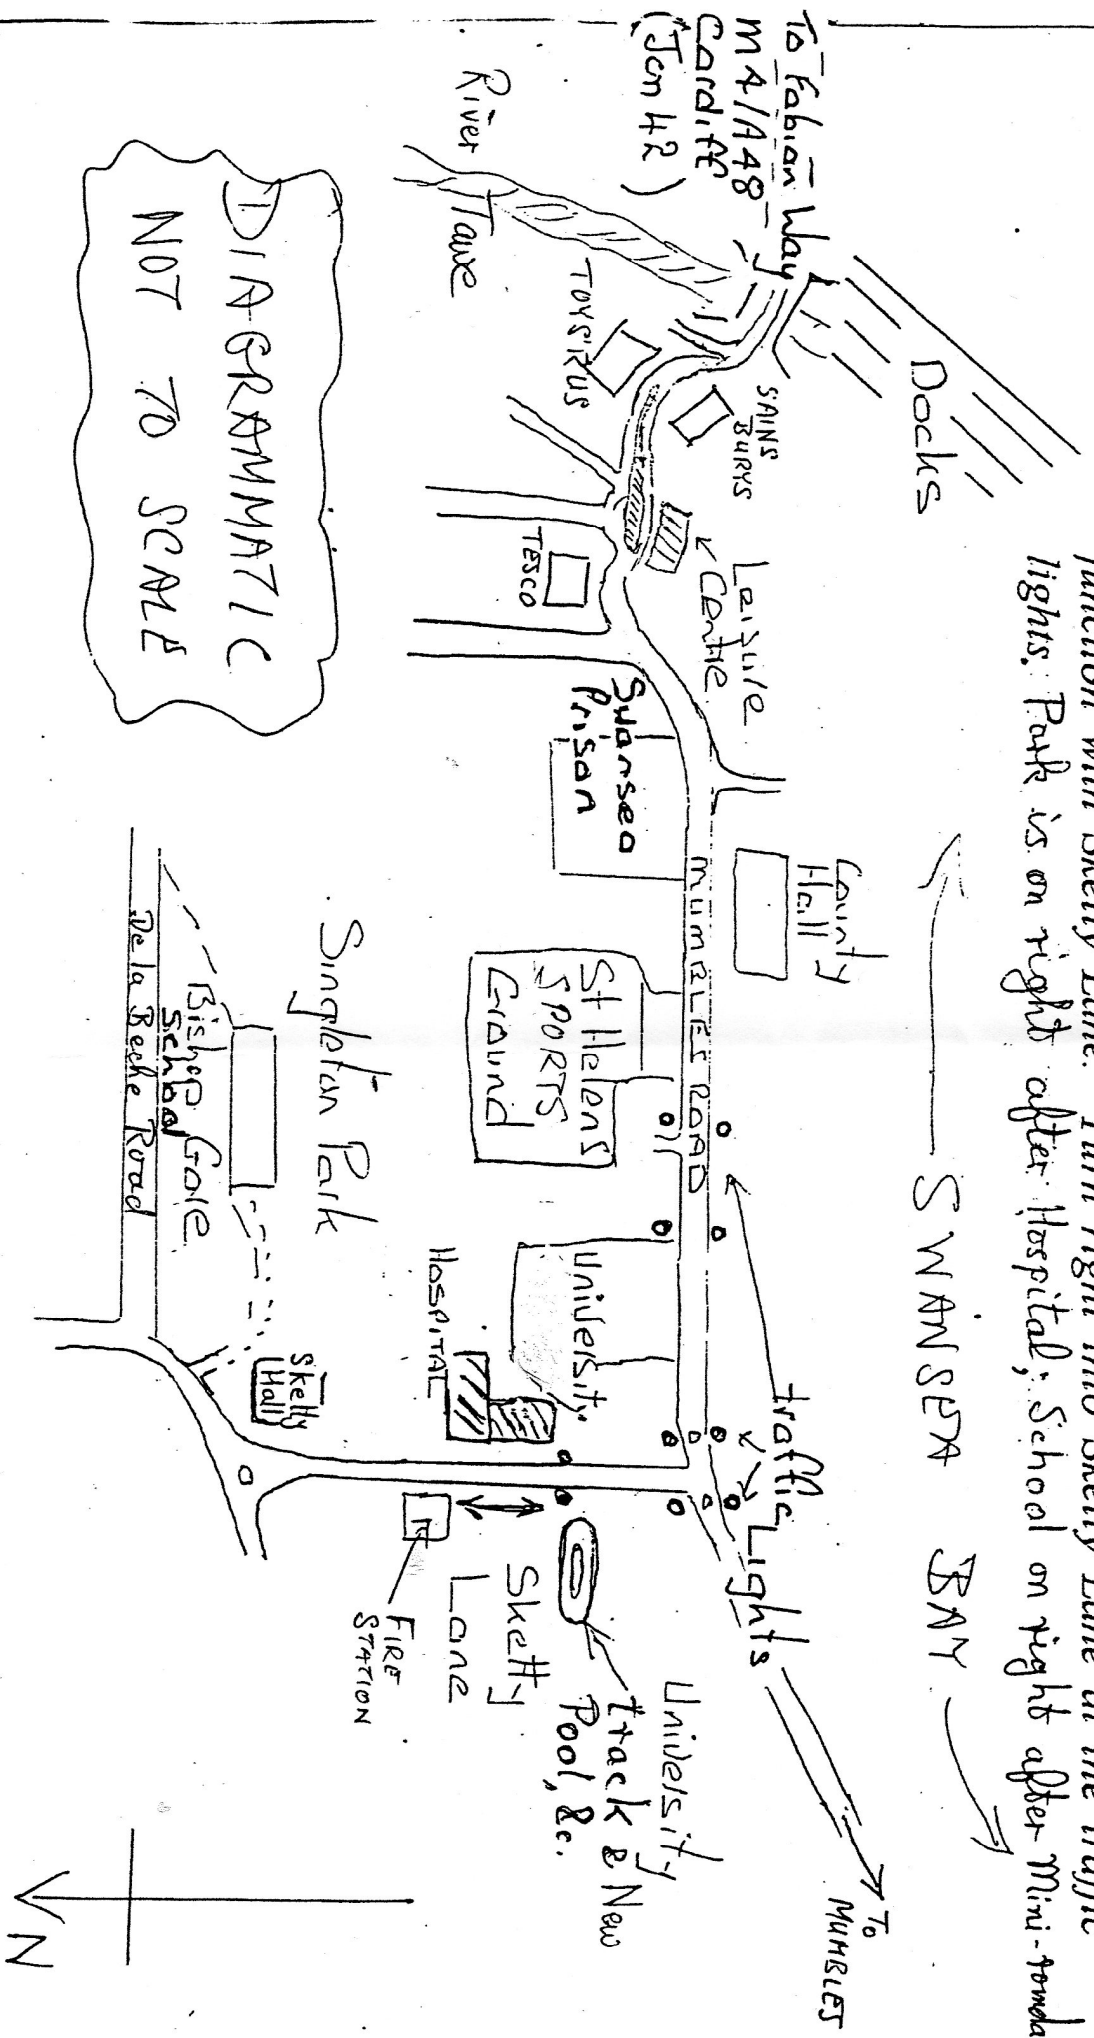 junction with Sketty Lane. Turn right into Sketty Lane at the traffic
lights. Park is on right after Hospital; School on right after Mini-rounda
To Fabian Way
M4/A48
Cardiff
(Jcn 42)
River Tawe
Docks
SWANSEA BAY
TOYS'R'US
SAINS
BURYS
Leisure
Centre
TESCO
Swansea
Prison
County
Hall
MUMBLES ROAD
St Helens
SPORTS
Ground
Traffic Lights
University
HOSPITAL
To
MUMBLES
University
track & New
Pool, &c.
Sketty
Lane
FIRE
STATION
Singleton Park
Sketty
Hall
Bishop Gore
School
De la Beche Road
DIAGRAMMATIC
NOT TO SCALE
N